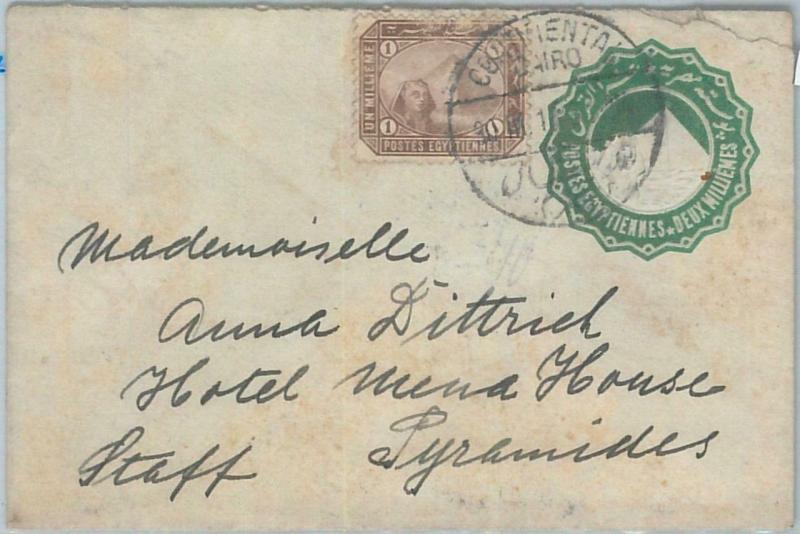 UN MILLIÈME
1
1
POSTES EGYPTIENNES
CONTINENTAL
CAIRO
POSTES EGYPTIENNES ★ DEUX MILLIÈMES
Mademoiselle
Anna Dittrich
Hotel Mena House
Staff Pyramides